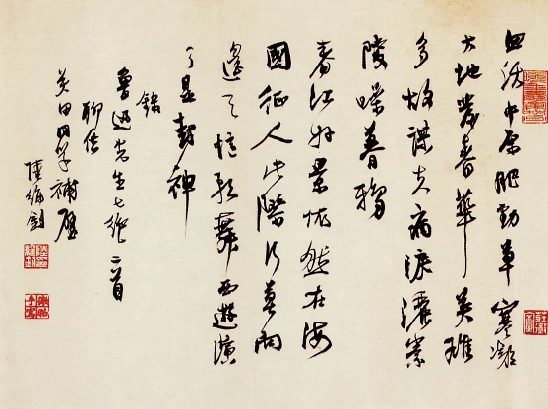 血沃中原肥勁草寒凝
大地發春華英雄
多故謀夫病淚灑崇
陵噪暮鴉
春江好景依然在海
國征人此際行莫向
遥天憶歌舞西遊演
了是封神
錄
魯迅先生七絕二首
聊供
田同學補壁
陸維釗